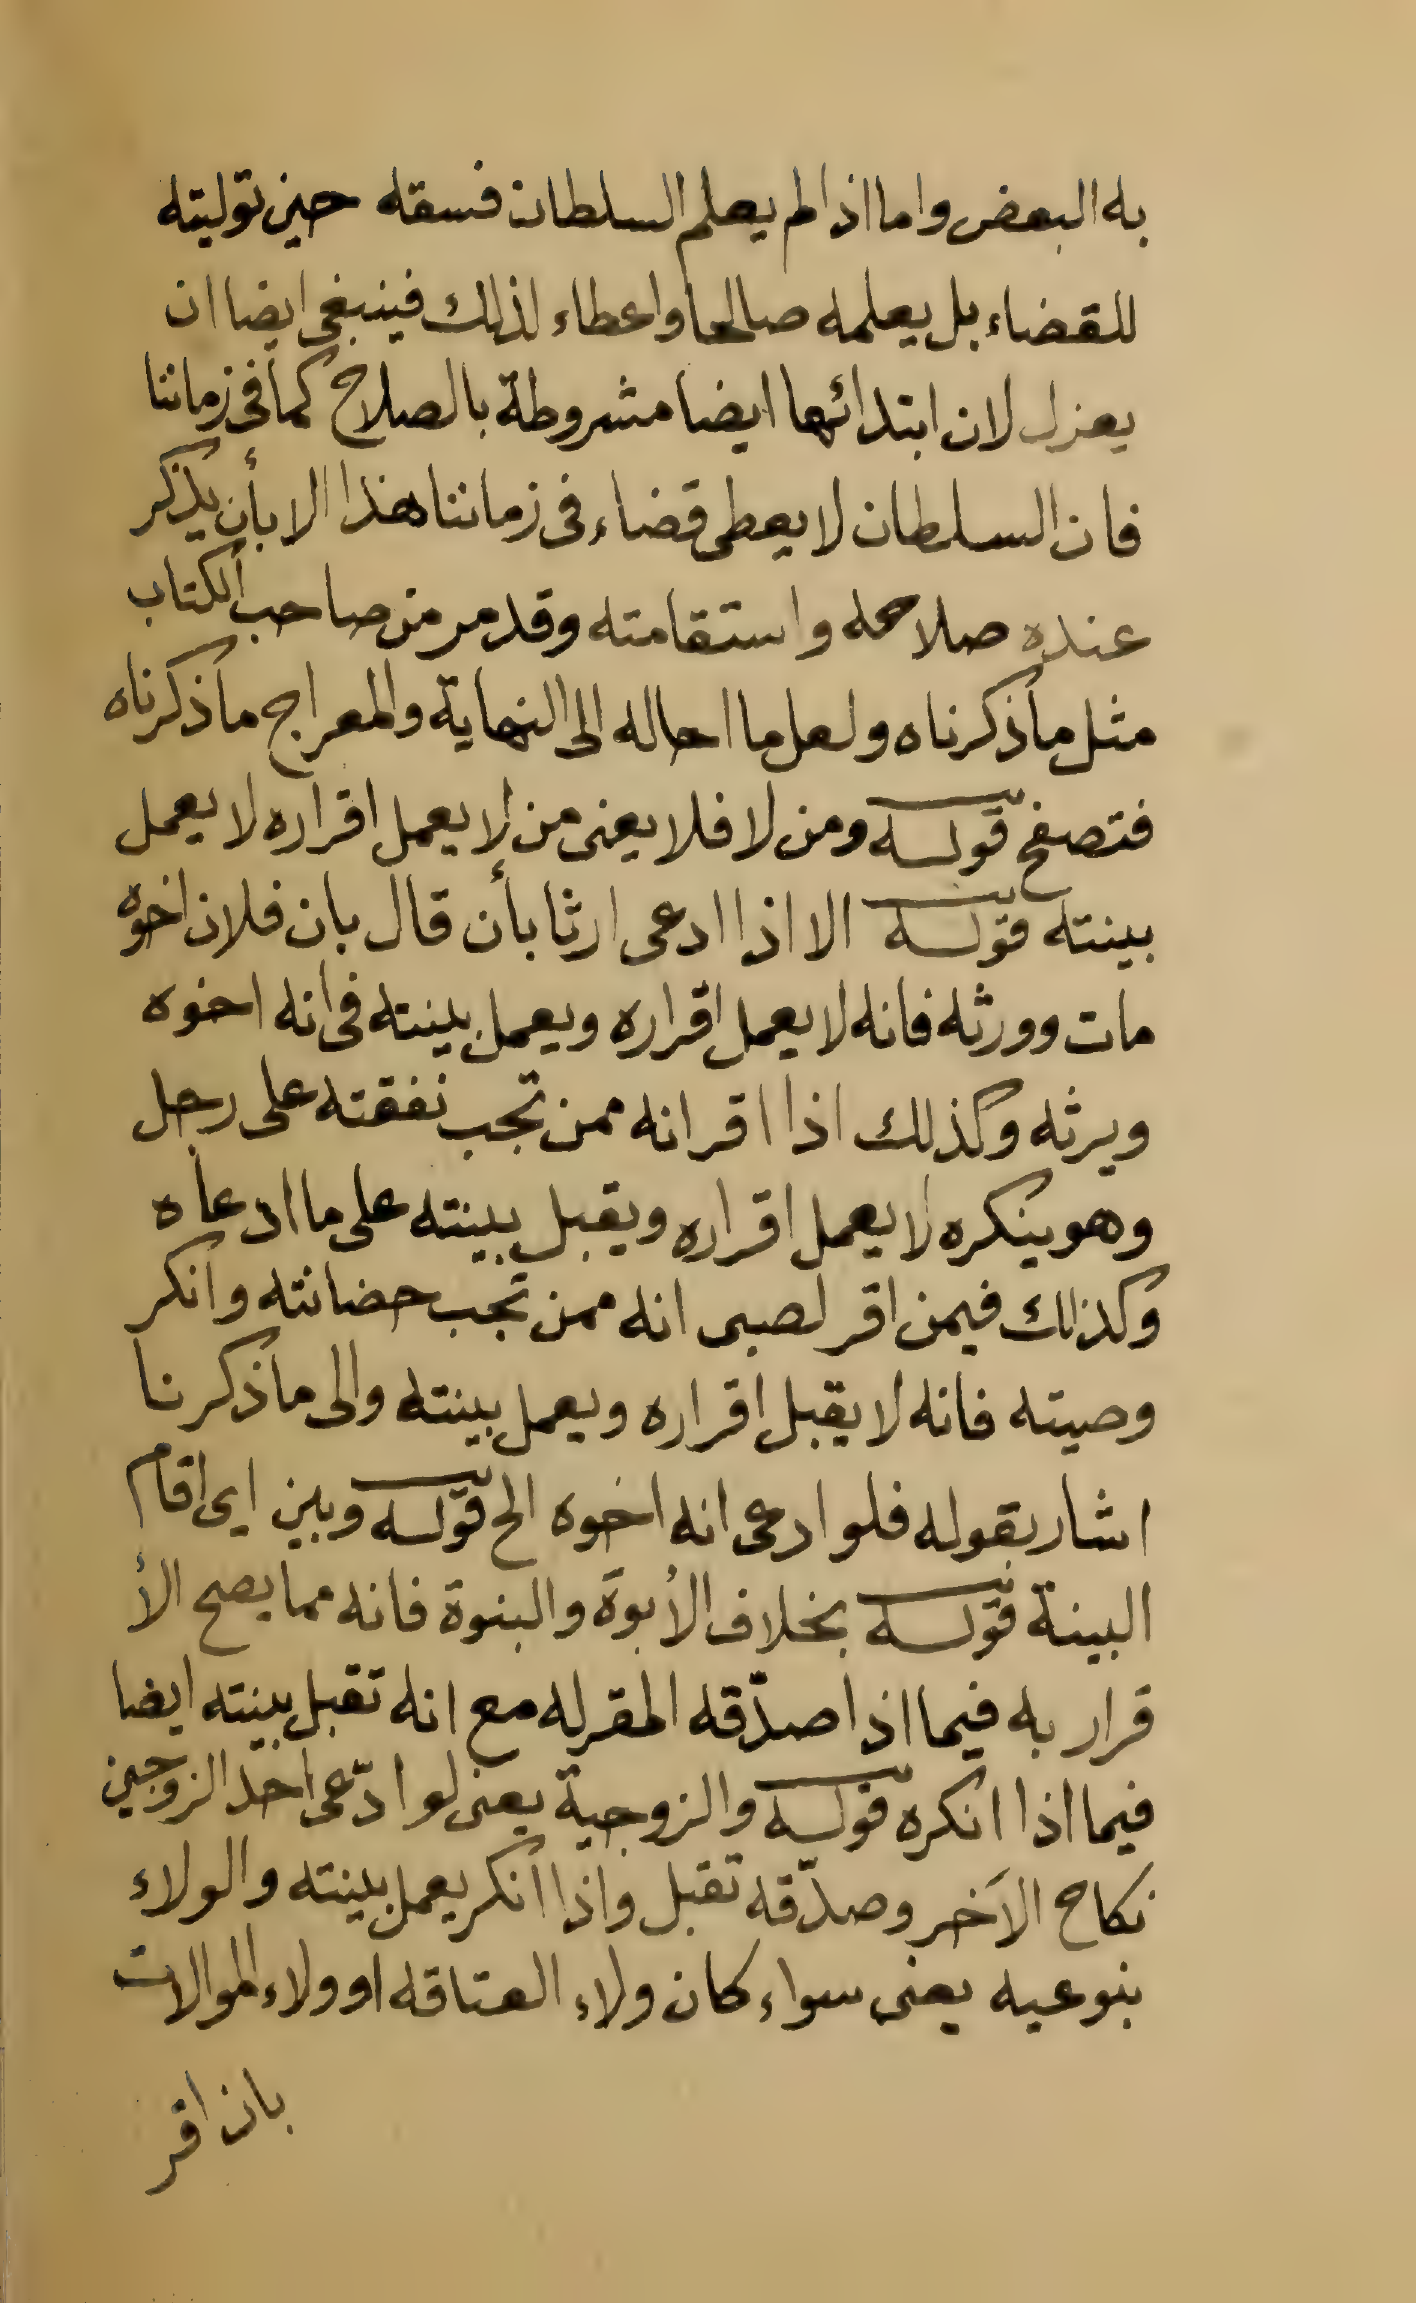 به البعض واما اذا لم يعلم السلطان فسقه حين توليته
للقضاء بل يعلمه صالحا واعطاء لذلك فينبغى ايضا ان
يعزل لان ابتدائها ايضا مشروطة بالصلاح كما فى زماننا
فان السلطان لا يعطى قضاء فى زماننا هذا الا بأن يذكر
عنده صلاحه واستقامته وقد مر من صاحب الكتاب
مثل ما ذكرناه ولعل ما احاله الى النهاية والمعراج ما ذكرناه
فتصفح قوله ومن لا فلا يعنى من لا يعمل اقراره لا يعمل
بينته قوله الا اذا ادعى ارثا بأن قال بان فلان اخوه
مات وورثه فانه لا يعمل اقراره ويعمل بينته فى انه اخوه
ويرثه وكذلك اذا اقر انه ممن تجب نفقته على رجل
وهو ينكره لا يعمل اقراره ويقبل بينته على ما ادعاه
وكذلك فيمن اقر لصبى انه ممن تجب حضانته وانكر
وصيته فانه لا يقبل اقراره ويعمل بينته والى ما ذكرنا
اشار بقوله فلو ادعى انه اخوه الخ قوله وبين اى اقام
البينة قوله بخلاف الأبوة والبنوة فانه مما يصح الأ
قرار به فيما اذا صدّقه المقر له مع انه تقبل بينته ايضا
فيما اذا انكره قوله والزوجية يعنى لو ادّعى احد الزوجين
نكاح الآخر وصدّقه تقبل واذا انكر يعمل بينته والولاء
بنوعيه يعنى سواء كان ولاء العتاقه او ولاء الموالات
بان اقر